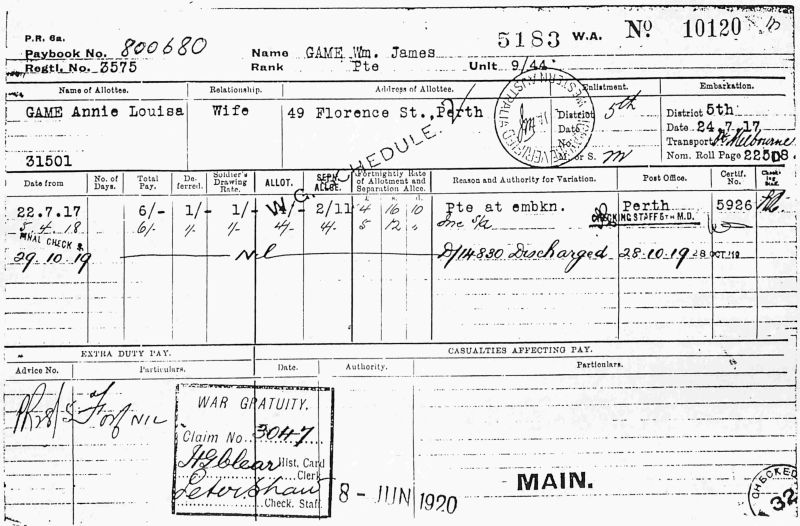 P.R. 6a.
Paybook No. 800680
Regtl. No. 3575
Name GAME Wm. James
Rank Pte
5183 W.A. No 10120
Unit 9/44
Name of Allottee. Relationship. Address of Allottee. Enlistment. Embarkation.
GAME Annie Louisa Wife 49 Florence St., Perth
31501
District 5th
Date
No.
M. or S. m
District 5th
Date 24.7.17
Transport Melbourne
Nom. Roll Page 22508
WESTERN AUSTRALIA
VERIFIED
W.G. SCHEDULE.
Date from No. of Days. Total Pay. Deferred. Soldier's Drawing Rate. ALLOT. SEPN. ALLCE. Fortnightly Rate of Allotment and Separation Allce. Reason and Authority for Variation. Post Office. Certif. No. Checking Staff.
22.7.17 6/- 1/- 1/- 4/- 2/11 4 16 10 Pte at embkn. Perth 5926
5.4.18 6/- 1/- 1/- 4/- 4/- 5 12 " Inc S/A CHECKING STAFF 5TH M.D.
FINAL CHECK
29.10.19 Nil D/14830 Discharged 28.10.19 28 OCT 19
EXTRA DUTY PAY. CASUALTIES AFFECTING PAY.
Advice No. Particulars. Date. Authority. Particulars.
Forf NIL
WAR GRATUITY.
Claim No. 3047
Hist. Card
Clerk
Check. Staff.
8 - JUN 1920
MAIN.
CHECKED
32